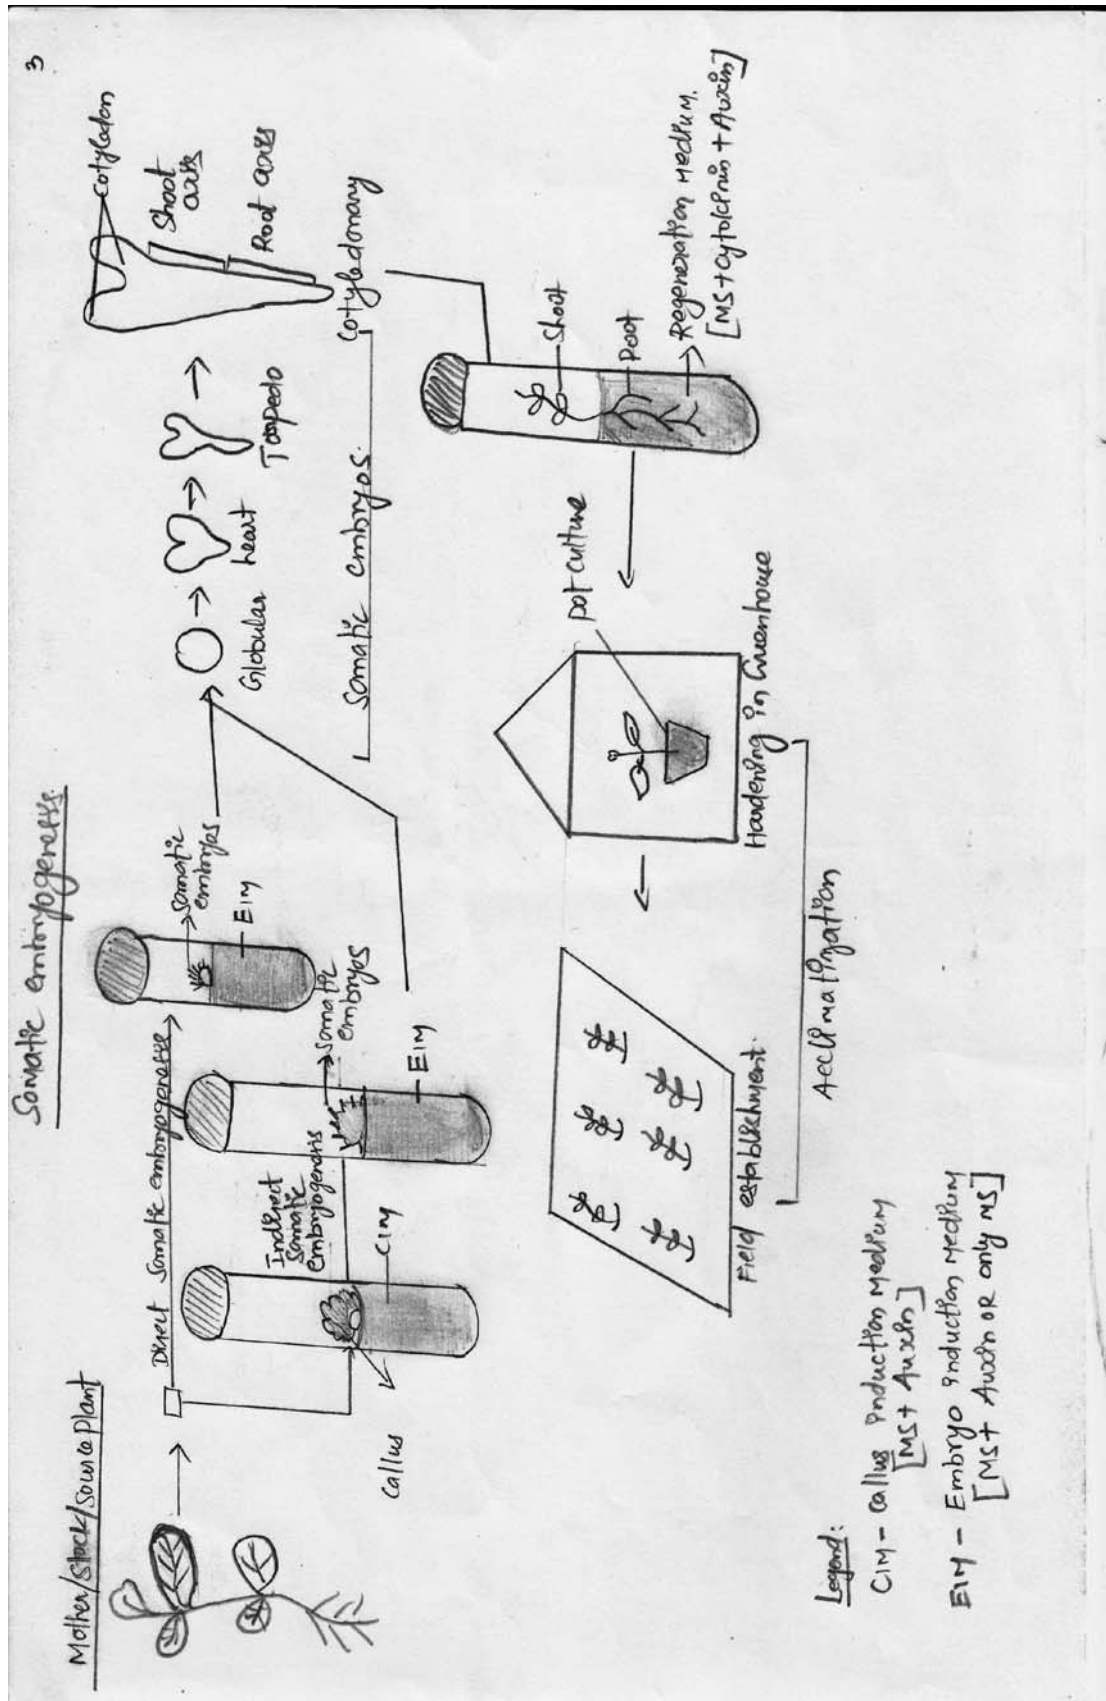 3
Somatic embryogenesis.
Mother/Stock/Source plant
Direct Somatic embryogenesis
Somatic
embryos
EIM
Indirect
Somatic
embryogenesis
Somatic
embryos
EIM
CIM
Callus
Globular
heart
Torpedo
Cotyledonary
Cotyledon
Shoot
axis
Root axis
Somatic embryos.
Shoot
Root
Regeneration Medium.
[MS+Cytokinin + Auxin]
pot culture
Hardening in Greenhouse
Field establishment.
Acclimatization
Legend:
CIM - Callus induction Medium
[MS+ Auxin]
EIM - Embryo induction Medium
[MS+ Auxin OR only MS]